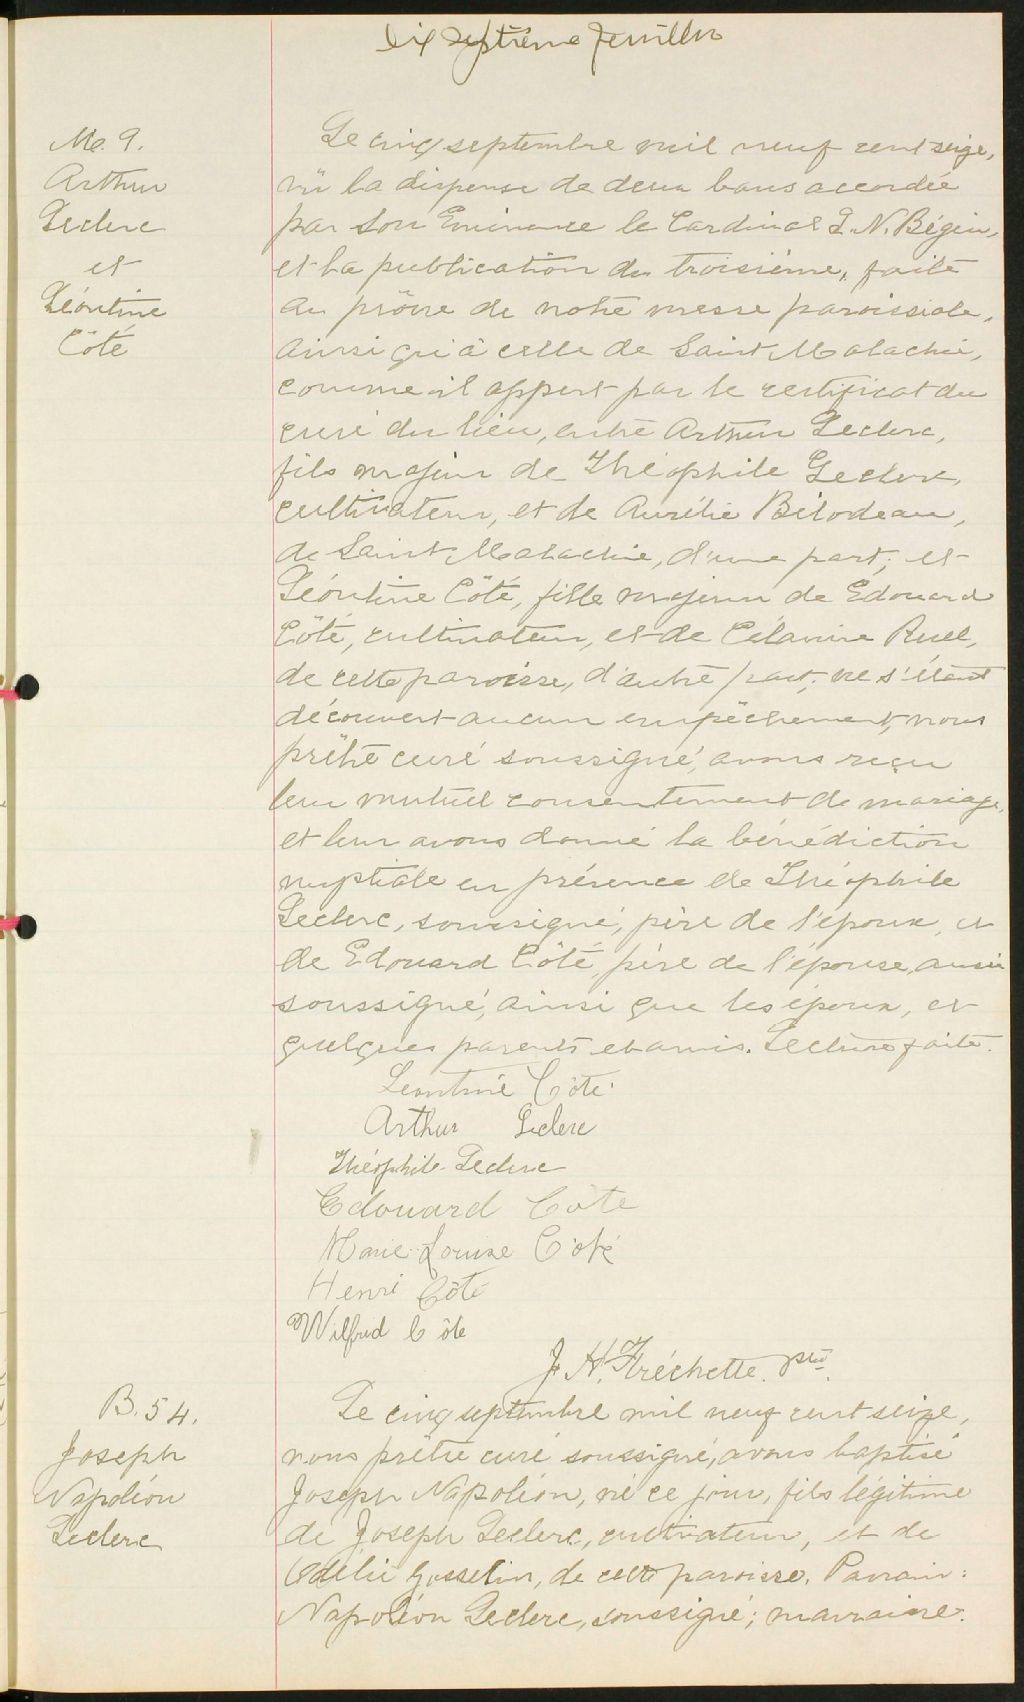 Dix septième feuillet
M. 9.
Arthur
Leclerc
et
Léontine
Côté
Le cinq septembre mil neuf cent seize,
vu la dispense de deux bans accordée
par Son Eminence le Cardinal L. N. Bégin,
et la publication du troisième, faite
au prône de notre messe paroissiale,
ainsi qu'à celle de Saint Malachie,
comme il appert par le certificat du
curé du lieu, entre Arthur Leclerc,
fils majeur de Théophile Leclerc,
cultivateur, et de Aurélie Bilodeau,
de Saint Malachie, d'une part; et
Léontine Côté, fille majeure de Edouard
Côté, cultivateur, et de Célanire Ruel,
de cette paroisse, d'autre part; ne s'étant
découvert aucun empêchement, nous
prêtre curé soussigné, avons reçu
leur mutuel consentement de mariage,
et leur avons donné la bénédiction
nuptiale en présence de Théophile
Leclerc, soussigné, père de l'époux, et
de Edouard Côté, père de l'épouse, aussi
soussigné, ainsi que les époux, et
quelques parents et amis. Lecture faite.
Léontine Côté
Arthur Leclerc
Théophile Leclerc
Edouard Côte
Marie-Louise Côté
Henri Côté
Wilfrid Côte
J. H. Fréchette. ptre.
B. 54.
Joseph
Napoléon
Leclerc
Le cinq septembre mil neuf cent seize,
nous prêtre curé soussigné, avons baptisé
Joseph Napoléon, né ce jour, fils légitime
de Joseph Leclerc, cultivateur, et de
Odélie Gosselin, de cette paroisse. Parrain:
Napoléon Leclerc, soussigné; marraine: